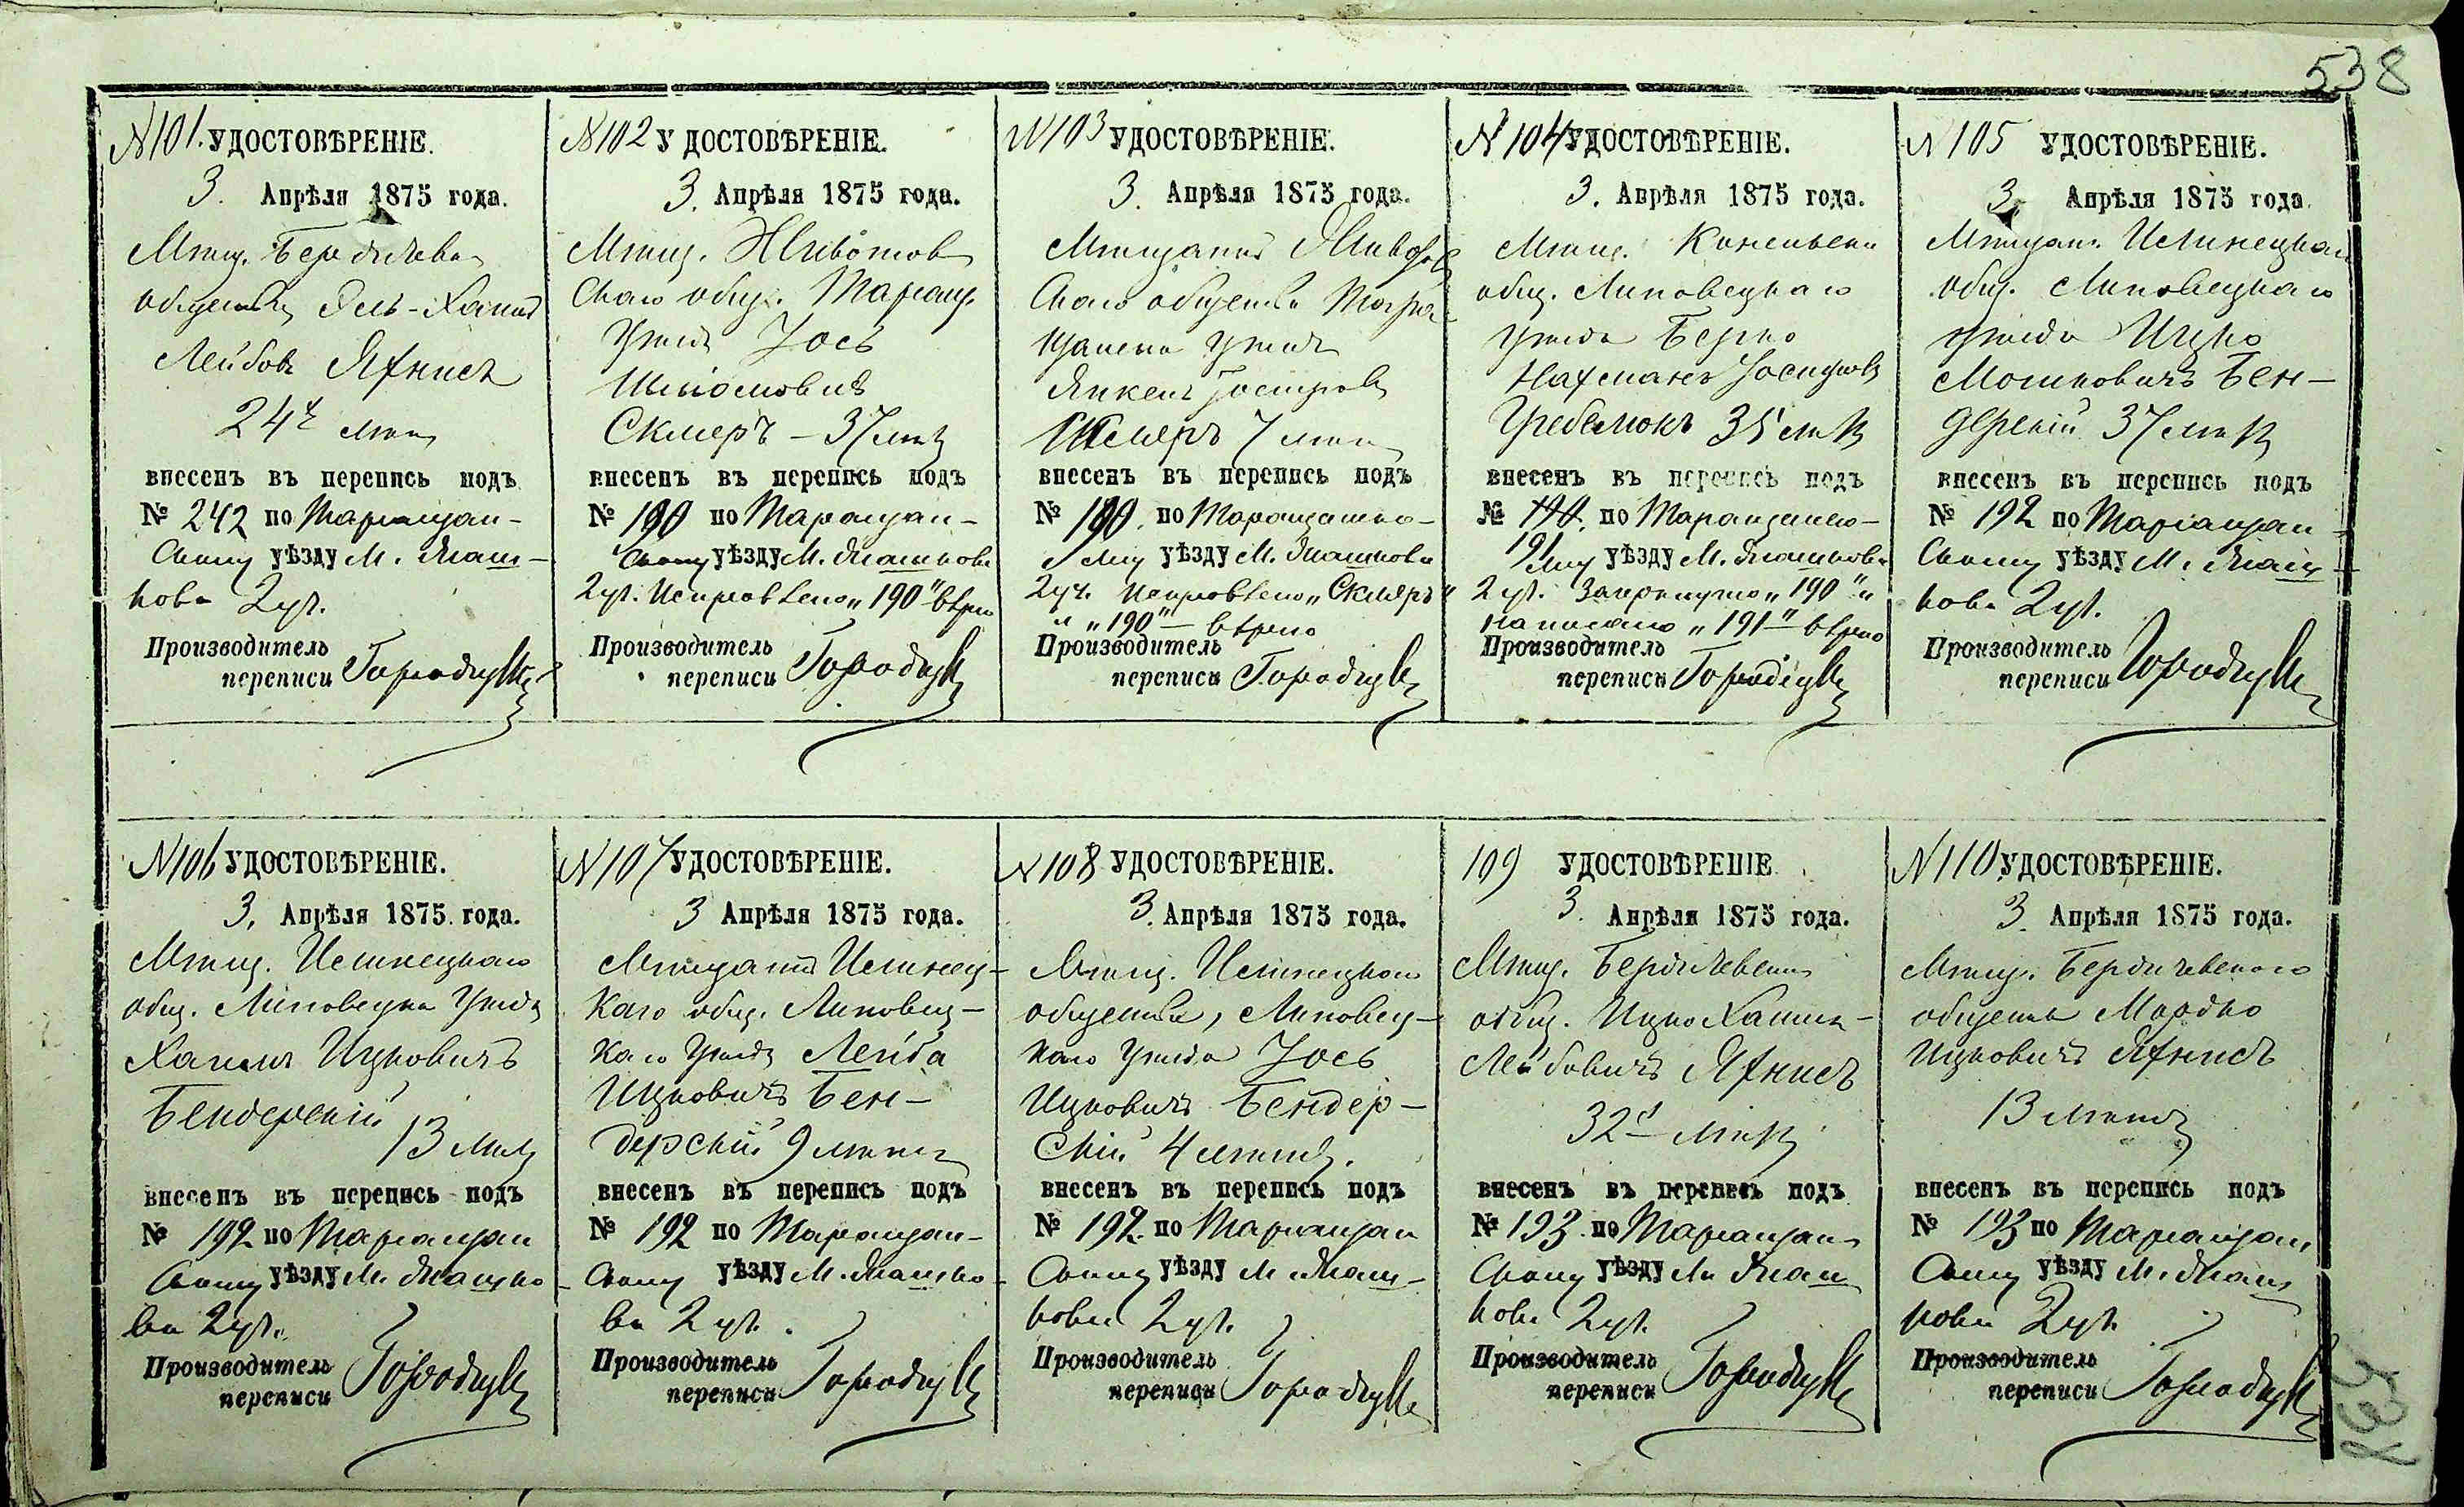 538
№101. УДОСТОВѢРЕНІЕ.
3. Апрѣля 1875 года.
Мѣщ. Бердичевск
общества Эль-Хаимъ
Лейбовъ Яхнисъ
24х лѣтъ
внесенъ въ перепись подъ
№ 242 по Таращан-
скому уѣзду М. Жаш-
кова 2 уч.
Производитель
переписи
№102 УДОСТОВѢРЕНІЕ.
3. Апрѣля 1875 года.
Мѣщ. Животов
скаго общ. Таращ.
Уѣзда Іось
Шліомовичъ
Склеръ – 37 лѣтъ
внесенъ въ перепись подъ
№ 190 по Таращан-
скому уѣзду М. Жашкова
2 уч. Исправлено „190" вѣрно
Производитель
переписи
№103 УДОСТОВѢРЕНІЕ.
3. Апрѣля 1875 года.
Мѣщанинъ Живот
скаго общества Тара-
щанска уѣзда
Янкель
Склеръ 7 лѣтъ
внесенъ въ перепись подъ
№ 190. по Таращанско-
му уѣзду М. Жашкова
2 уч. Исправлено „Склеръ"
и „190" – вѣрно
Производитель
переписи
№ 104 УДОСТОВѢРЕНІЕ.
3. Апрѣля 1875 года.
Мѣщ.
общ. Липовецкаго
уѣзда Берко
Нахманъ
Гребелюкъ 35 лѣтъ
внесенъ въ перепись подъ
№ 190. по Таращанско-
191 му уѣзду М. Жашкова
2 уч. Зачеркнуто „190" и
написано „191" вѣрно
Производитель
переписи
№ 105 УДОСТОВѢРЕНІЕ.
3. Апрѣля 1875 года.
Мѣщан. Илинецкаго
общ. Липовецкаго
уѣзда Ицко
Мошковичъ Бен-
дерскій 37 лѣтъ
внесенъ въ перепись подъ
№ 192 по Таращан
скому уѣзду М. Жаш-
кова 2 уч.
Производитель
переписи
№106 УДОСТОВѢРЕНІЕ.
3. Апрѣля 1875 года.
Мѣщ. Илинецкаго
общ. Липовецка уѣзда
Ицковичъ
Бендерскій
13 лѣтъ
внесенъ въ перепись подъ
№ 192 по Таращан
скому уѣзду М. Жашко
ва 2 уч.
Производитель
переписи
№107 УДОСТОВѢРЕНІЕ.
3 Апрѣля 1875 года.
Мѣщанинъ Илинец-
каго общ. Липовец-
каго уѣзда Лейба
Ицковичъ Бен-
дерскій 9 лѣтъ
внесенъ въ перепись подъ
№ 192 по Таращан-
скому уѣзду М. Жашко-
ва 2 уч.
Производитель
переписи
№108 УДОСТОВѢРЕНІЕ.
3. Апрѣля 1875 года.
Мѣщ. Илинецкаго
общества, Липовец-
каго уѣзда Іось
Ицковичъ Бендер-
скій 4 лѣтъ.
внесенъ въ перепись подъ
№ 192. по Таращан
скому уѣзду М. Жаш-
кова 2 уч.
Производитель
переписи
109 УДОСТОВѢРЕНІЕ
3. Апрѣля 1875 года.
Мѣщ. Бердичевскаго
общ. Ицко
Лейбовичъ Яхнисъ
32х лѣтъ
внесенъ въ перепись подъ
№ 193. по Таращан-
скому уѣзду М. Жаш
кова 2 уч.
Производитель
переписи
№110 УДОСТОВѢРЕНІЕ.
3. Апрѣля 1875 года.
Мѣщ. Бердичевскаго
общества Мордко
Ицковичъ Яхнисъ
13 лѣтъ
внесенъ въ перепись подъ
№ 193 по Таращан
скому уѣзду М. Жаш
кова 2 уч.
Производитель
переписи